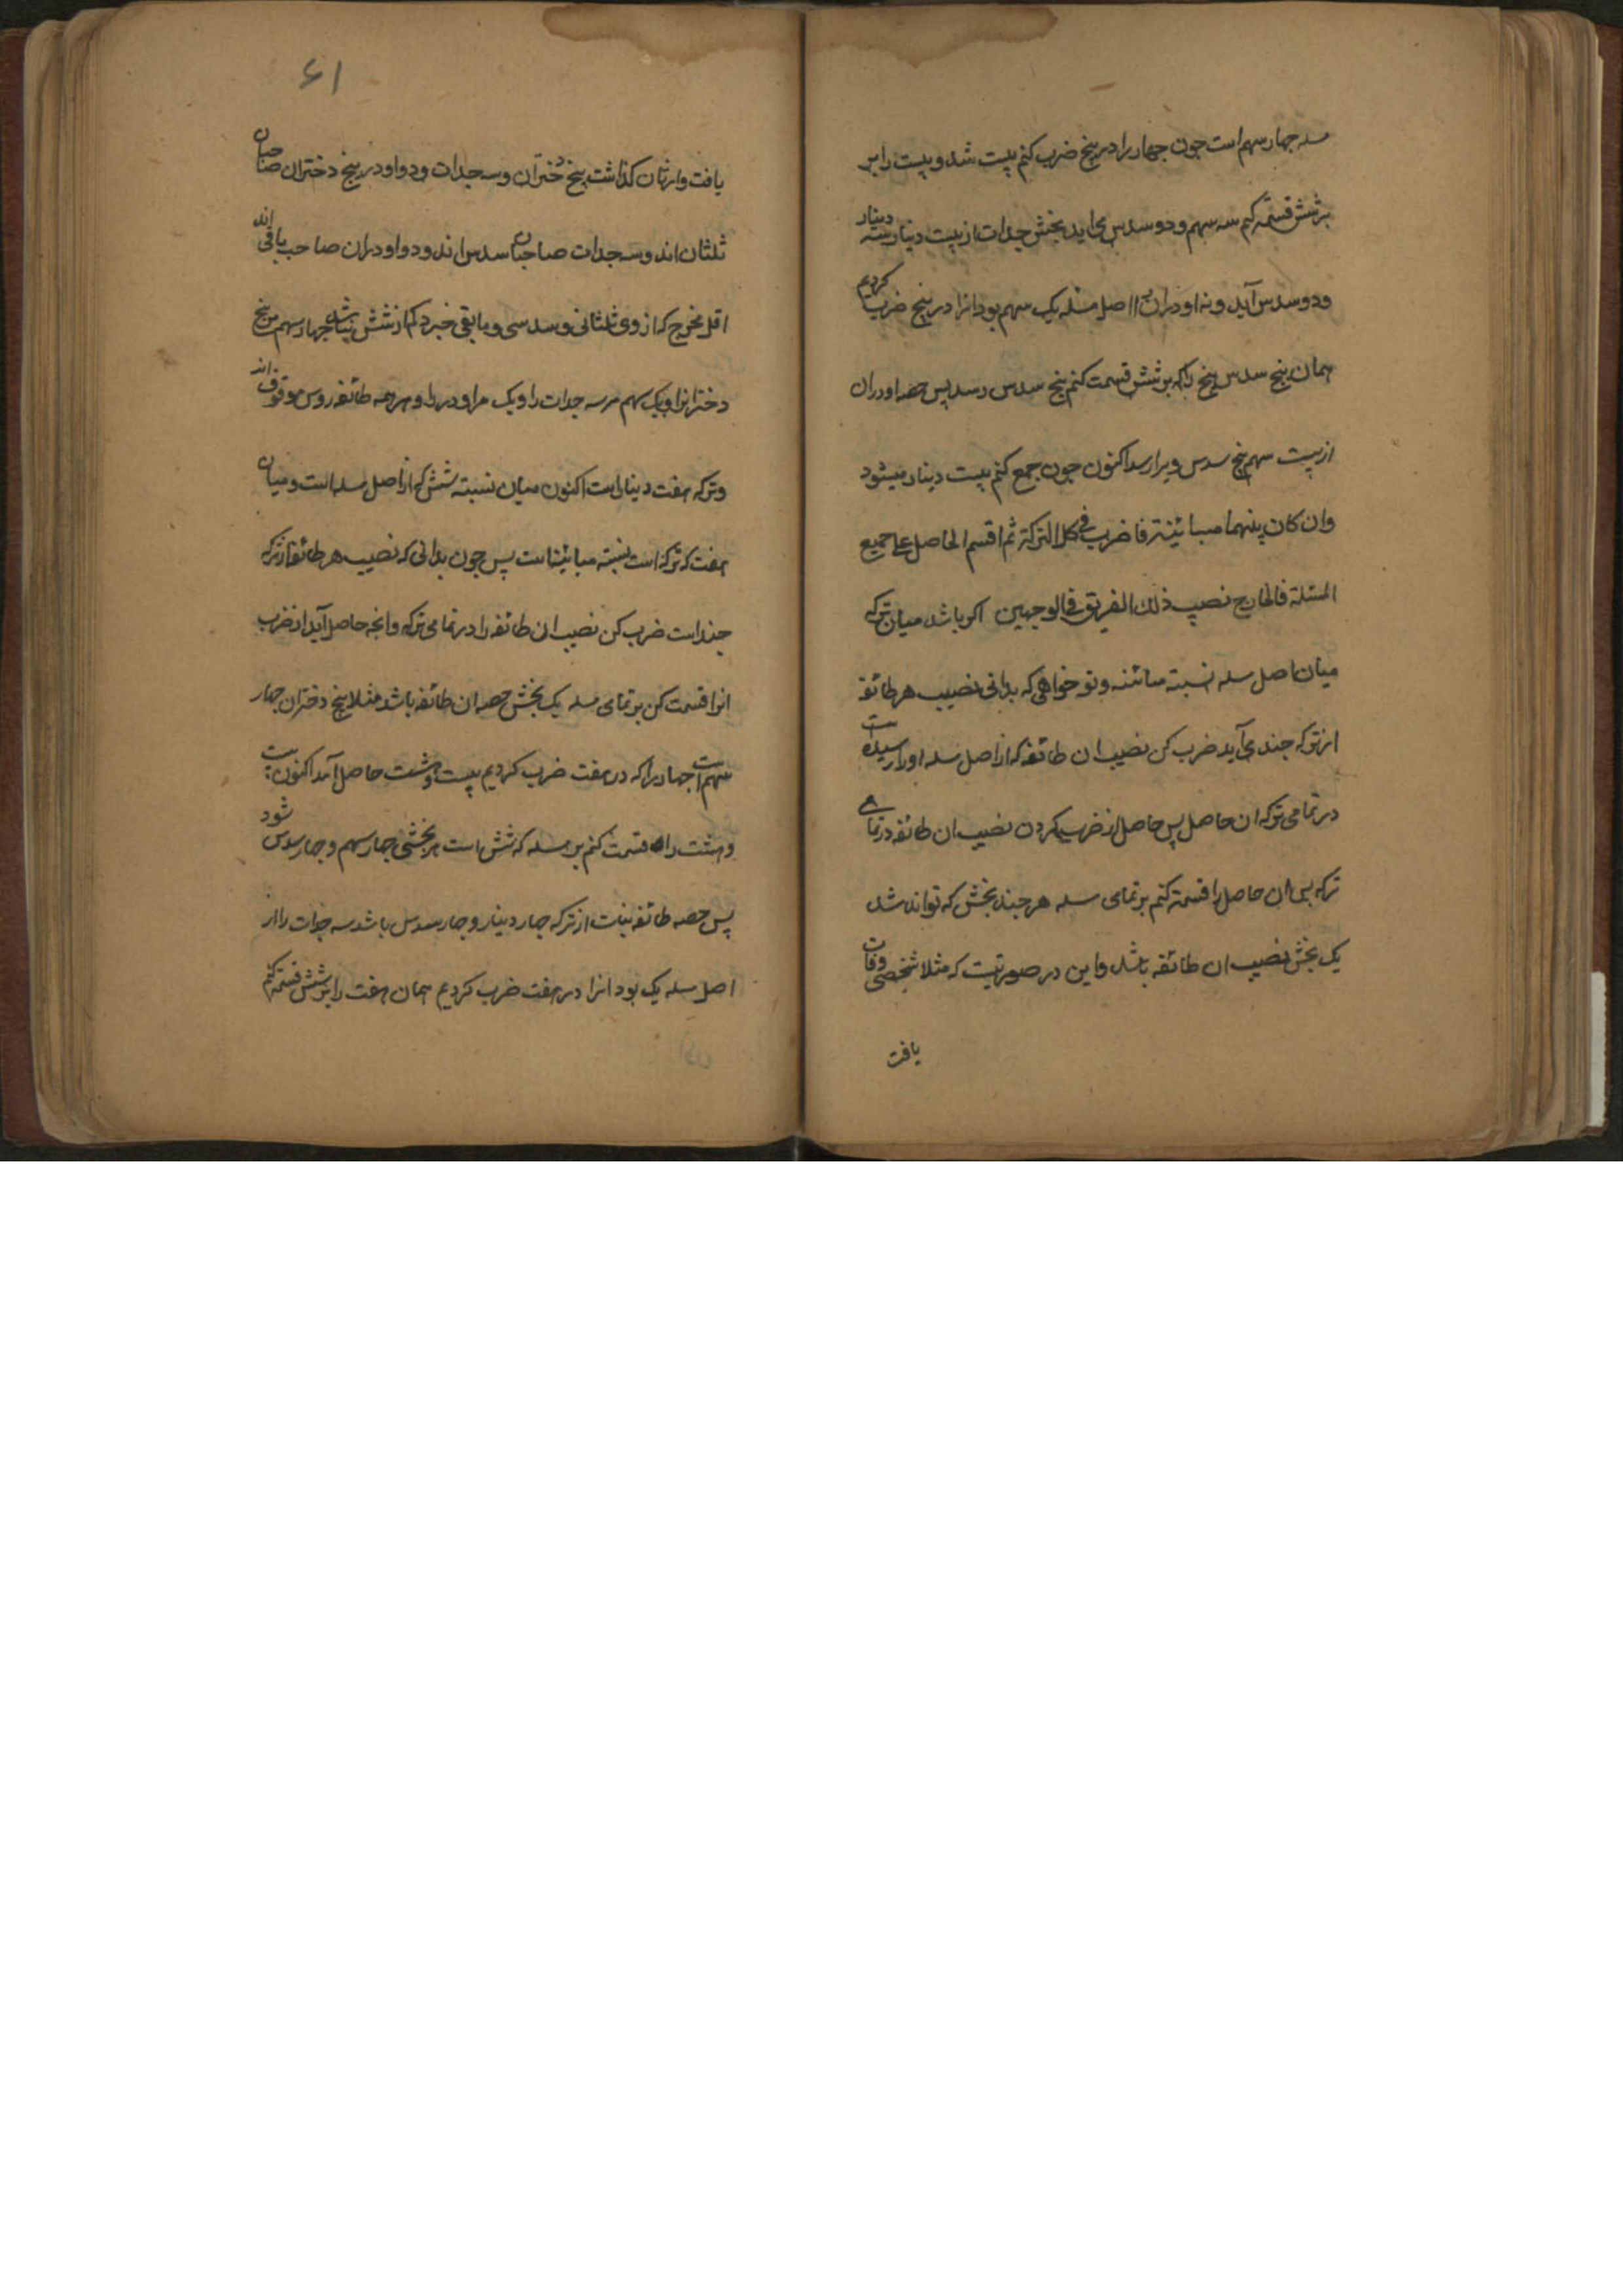 مسله چهار سهم است جون چهار را در پنج ضرب کنم بیست شد و بیست را بر
بر شش قسمة کنم سه سهم و دو سدس می اید بخش جدات از بیست دینار سه دینار
و دو سدس آید و نه اودران از اصل مسله یک سهم بود انرا در پنج ضرب کردیم
همان پنج سدس پنج را که بر شش قسمت کنم پنج سدس رسد پس حصه اودران
از بیست سهم پنج سدس ویرا رسد اکنون جون جمع کنم بیست دینار میشود
وان کان بینهما مباینة فاضرب فی کل الترکة ثم اقسم الحاصل علی جمیع
المسئلة فالخارج نصیب ذلک الفریق فی الوجهین اکر باشد میان ترکه
میان اصل مسله نسبته مباینه و تو خواهی که بدانی نصیب هر طائفه
از ترکه جند می آید ضرب کن نصیب ان طائفه که از اصل مسله اورا رسیده است
در تمامی ترکه ان حاصل پس حاصل از ضرب کردن نصیب ان طائفه در تمامے
ترکه پس ان حاصل را قسمة کنم بر تمای مسله هر جند بخش که تواند شد
یک بخش نصیب ان طائفه باشد و این در صورتیست که مثلا شخصی وفات
یافت
۶۱
یافت وارثان کذاشت پنج دختران و سه جدات و دو اودر پنج دختران صاحبان
ثلثان اند و سه جدات صاحبان سدس اند و دو اودران صاحب باقی اند
اقل مخرج که از وی ثلثانی و سدسی و مابقی خیزد که از شش باشد چهار سهم مر پنج
دخترانرا و یک سهم مر سه جدات را و یک مر اودر را و هر همه طائفه روس موقوف اند
و ترکه هفت دینار است اکنون میان نسبته شش که از اصل مسله است و میان
هفت که ترکه است نسبته مباینت است پس جون بدانی که نصیب هر طائفه از ترکه
جند است ضرب کن نصیب ان طائفه را در تمامی ترکه وانجه حاصل آید از ضرب
انرا قسمت کن بر تمای مسله یک بخش حصه ان طائفه باشد مثلا پنج دختران چهار
سهم است چهار را که در هفت ضرب کردیم بیست و هشت حاصل آمد اکنون بیست
و هشت را قسمت کنم بر مسله که شش است هر بخشی چهار سهم و چهار سدس شود
پس حصه طائفه بنات از ترکه چهار دینار و چهار سدس باشد سه جدات را از
اصل مسله یک بود انرا در هفت ضرب کردیم همان هفت را بر شش قسمة کنم